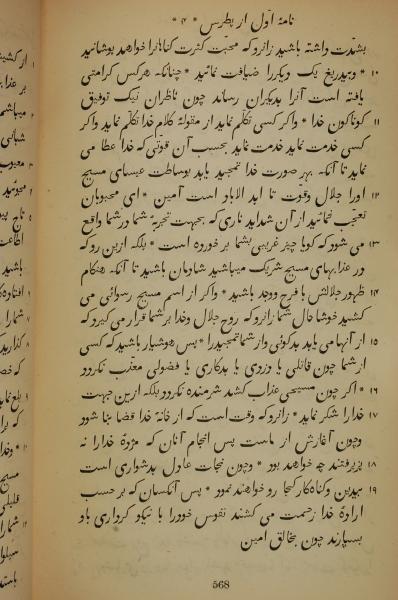 نامهٔ اوّل از پطرس * ۴ *
بشدّت داشته باشید زانروکه محبّت کثرت کناهانرا خواهد پوشانید
۱۰ * وبیدریغ یک دیکررا ضیافت نمائید * چنانکه هرکس کرامتی
یافته است آنرا بدیکران رساند چون ناظران نیک توفیق
۱۱ کوناکون خدا * واکر کسی تکلّم نماید از مقولهٔ کلام خدا تکلّم نماید واکر
کسی خدمت نماید خدمت نماید بحسب آن قوّتی که خدا عطا می
نماید تا آنکه بهر صورت خدا تمجید یابد بوساطت عیسای مسیح
۱۲ اورا جلال وقوّت تا ابد الاباد است آمین * ای محبوبان
تعجّب ننمائید از آن شداید ناری که بجهت تجربهٔ شما درشما واقع
۱۳ می شود که کویا چیز غریبی بشما بر خورده است * بلکه ازین رو که
در عذابهای مسیح شریک میباشید شادمان باشید تا آنکه هنکام
۱۴ ظهور جلالش با فرح ووجد باشید * واکر از اسم مسیح رسوائی می
کشید خوشا حال شما زانرو که روح جلال وخدا برشما قرار می کیرد که
۱۵ از آنها می یابد بدکوئی واز شما تمجیدرا * پس هوشیار باشید که کسی
ازشما چون قاتلی یا دزدی یا بدکاری یا فضولی معذّب نکردد
۱۶ * اکر چون مسیحی عذاب کشد شرمنده نکردد بلکه ازین جهت
۱۷ خدارا شکر نماید * زانرو که وقت است که از خانهٔ خدا قضا بنا شود
وچون آغازش از ماست پس انجام آنان که مژدهٔ خدارا نه
۱۸ پزیرفتند چه خواهد بود * وچون نجات عادل بدشواری است
۱۹ بیدین وکناه‌کار کجا رو خواهند نمود * پس آنکسان که بر حسب
ارادهٔ خدا زحمت می کشند نفوس خودرا با نیکو کرداری باو
بسپارند چون بخالق امین
568